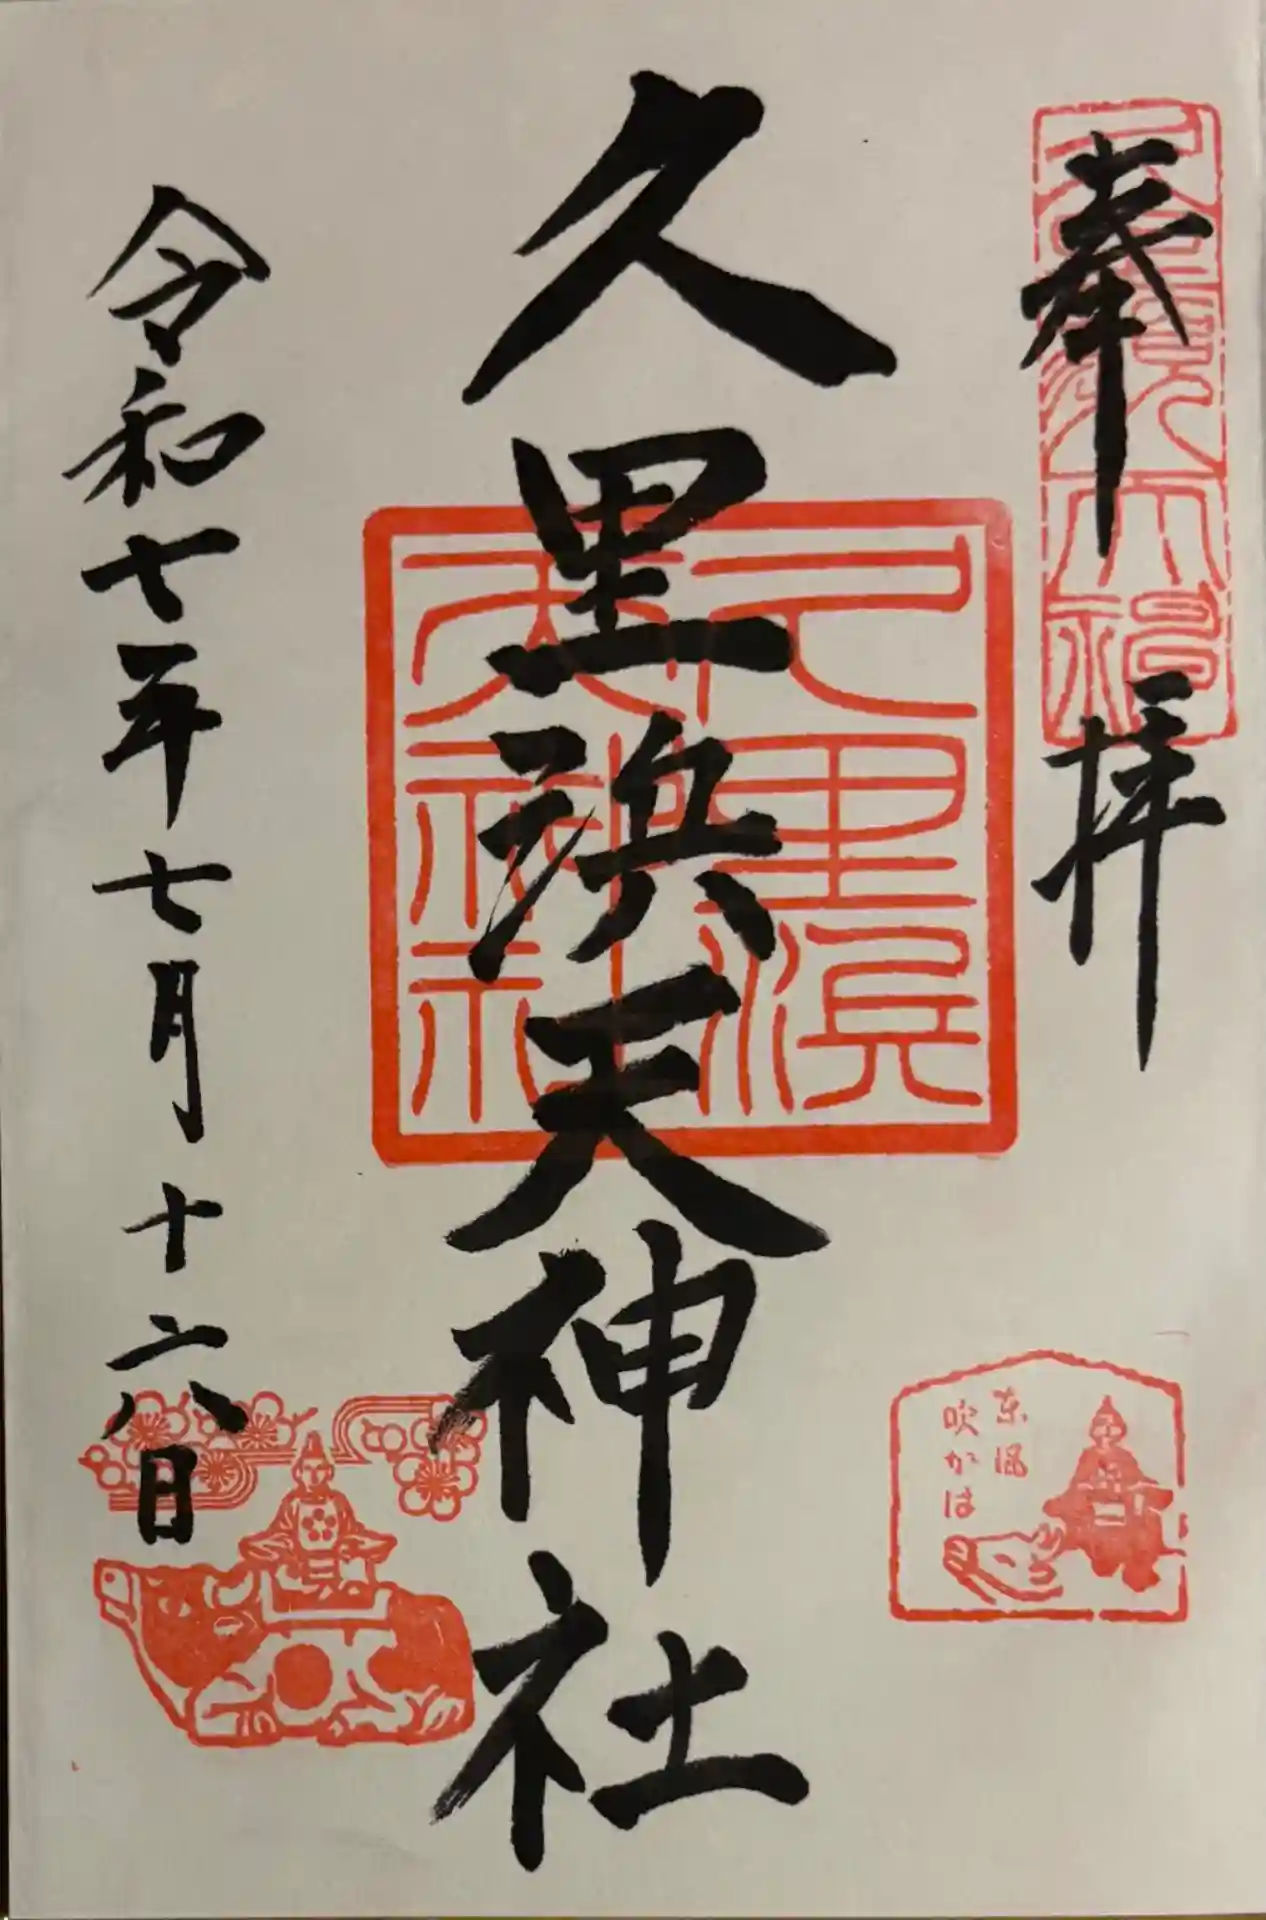 奉拝
久里浜天神社
久里濱
天神社
令和七年七月十六日
東風
吹かは